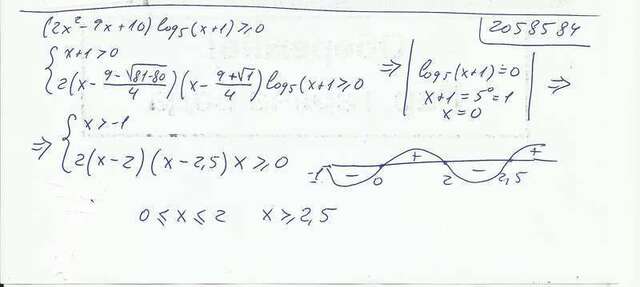 (2x²-9x+10)log₅(x+1)≥0
2058584
{ x+1>0
2(x-(9-√81-80)/4)(x-(9+√1)/4)log₅(x+1≥0 ⇒ | log₅(x+1)=0
x+1=5⁰=1
x=0 | ⇒
⇒ { x>-1
2(x-2)(x-2,5)x≥0
-1 - 0 + 2 - 2,5 +
0≤x≤2 x≥2,5